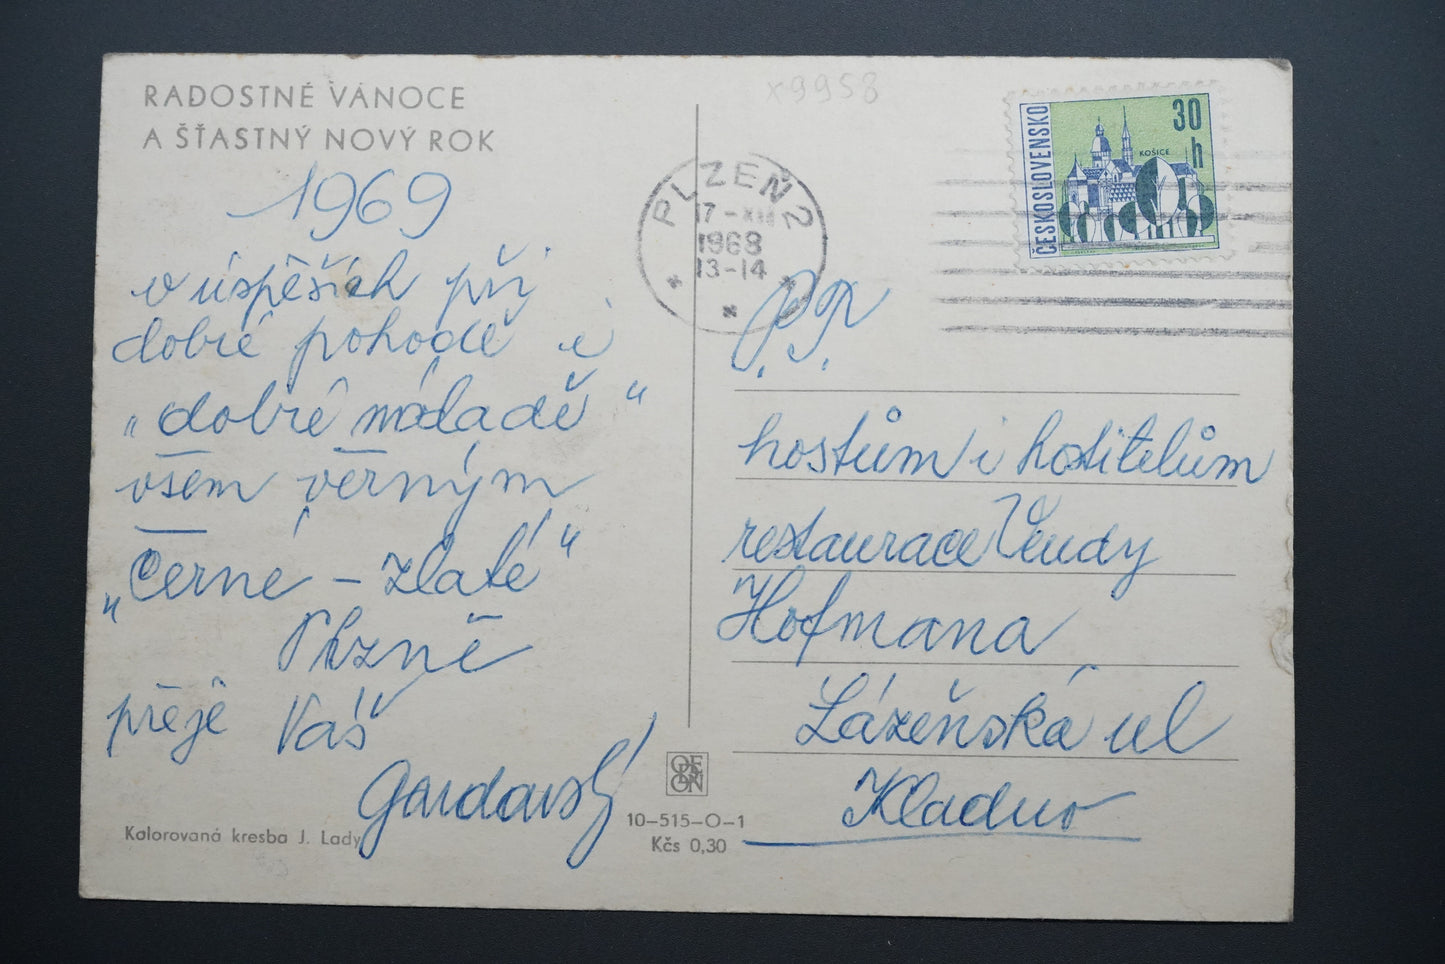 RADOSTNÉ VÁNOCE
A ŠŤASTNÝ NOVÝ ROK
1969
v úspěších při
dobré pohodě i
„dobré náladě“
všem věrným
„Černé – zlaté“
Plzně
přeje Váš
Gardavský
Kolorovaná kresba J. Lady
x9958
PLZEŇ 2
17-XII
1968
13-14
ČESKOSLOVENSKO
30
h
KOŠICE
P.P.
hostům i hostitelům
restaurace Vendy
Hofmana
Lázeňská ul
Kladno
ODEON
10-515-O-1
Kčs 0,30